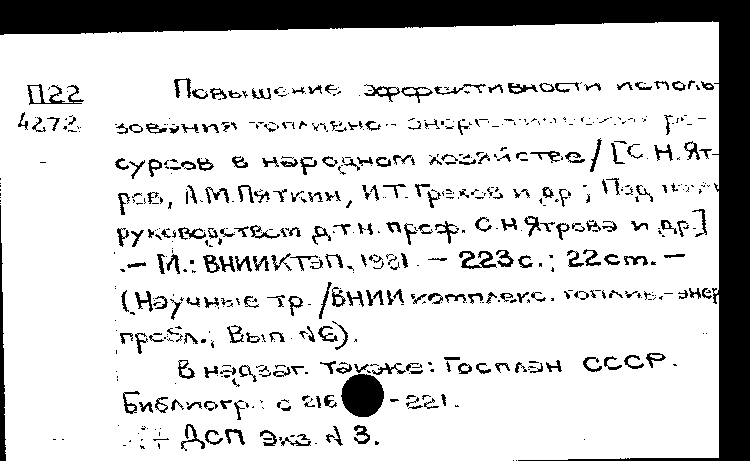 П22 Повышение эффективности исполь-
4272 зования топливно-энергетических ре-
сурсов в народном хозяйстве/[С.Н.Ят-
ров, А.М.Пяткин, И.Т.Грехов и др.; Под научн.
руководством д.т.н. проф. С.Н.Ятрова и др.]
.— М.: ВНИИКТЭП, 1981. — 223с.; 22 cm. —
(Научные тр./ВНИИ комплекс. топлив.-энер
пробл.; Вып. №6).
В надзаг. также: Госплан СССР.
Библиогр.: с 216-221.
ДСП Экз. № 3.